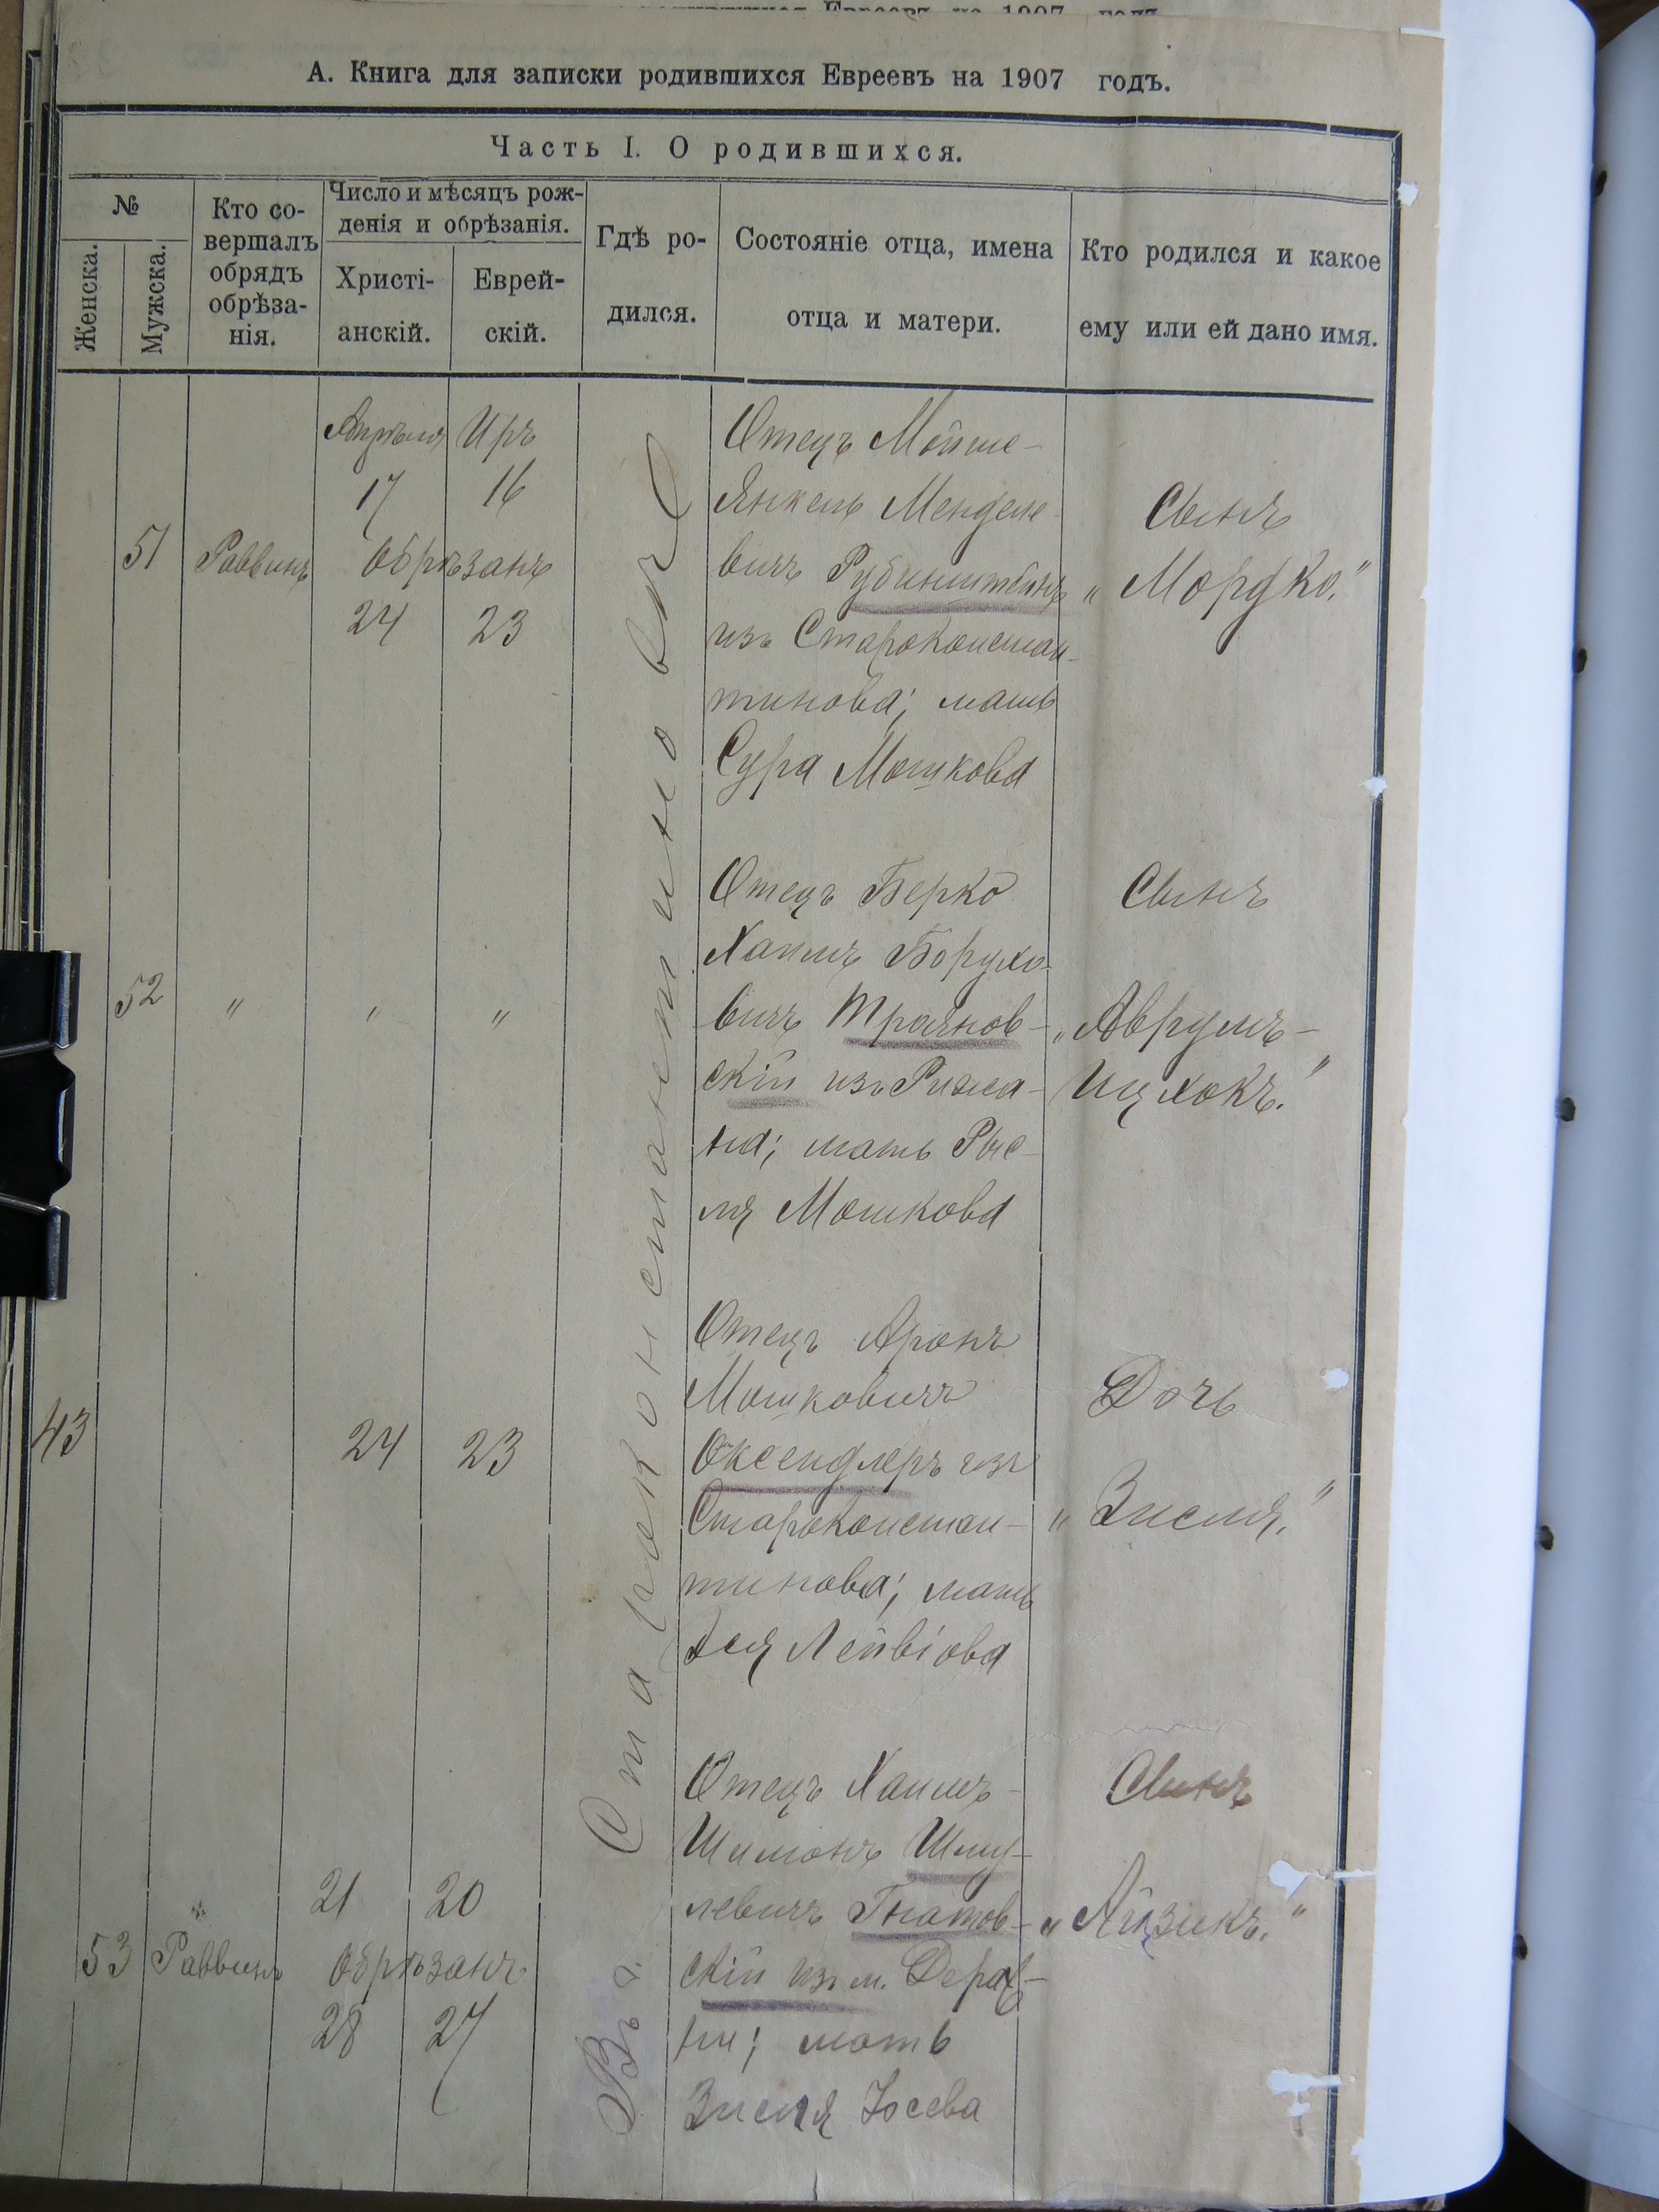 А. Книга для записки родившихся Евреевъ на 1907 годъ.
Часть I. О родившихся.
№
Женска.
Мужска.
Кто со-
вершалъ
обрядъ
обрѣза-
нія.
Число и мѣсяцъ рож-
денія и обрѣзанія.
Христі-
анскій.
Еврей-
скій.
Гдѣ ро-
дился.
Состояніе отца, имена
отца и матери.
Кто родился и какое
ему или ей дано имя.
Въ г. Староконстантиновѣ
51
Раввинъ
Апрѣля Иръ
17 16
Обрѣзанъ
24 23
Отецъ Мойше-
Янкель Менделе-
вичъ Рубинштейнъ
изъ Староконстан-
тинова; мать
Сура Мошкова
Сынъ
„Мордко.“
52
" " "
Отецъ Берко
Хаимъ Борухо-
вичъ Трояновъ-
скій изъ
мать Рыс-
ля Мошкова
Сынъ
„Аврумъ-
Ицхокъ.“
43
24 23
Отецъ Аронъ
Мошковичъ
Оксендлеръ изъ
Староконстан-
тинова; мать
Лейвіова
Дочь
„Зисля.“
53
Раввинъ
21 20
Обрѣзанъ
28 27
Отецъ Хаимъ-
Шимонъ Шму-
левичъ Гнатов-
скій изъ м. Дераж-
ни; мать
Зисля Іосева
Сынъ
„Айзикъ.“